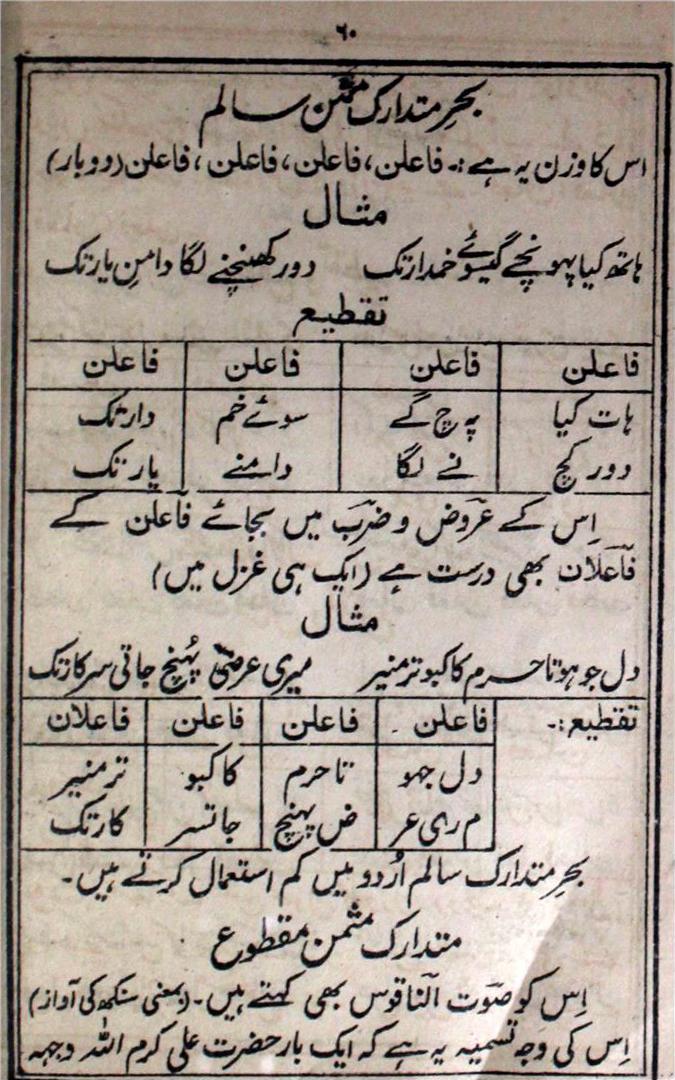 ۶۰
بحرِ متدارک مثمن سالم
اس کا وزن یہ ہے :۔ فاعلن، فاعلن، فاعلن، فاعلن (دو بار)
مثال
ہاتھ کیا پہونچے گیسوئے خمدار تک دور کھینچنے لگا دامنِ یار تک
تقطیع
فاعلن فاعلن فاعلن فاعلن
ہات کیا پہ چ گے سوئے خم دار تک
دور کچ نے لگا دامنے یار تک
اِس کے عروض و ضرب میں بجائے فاعلن کے
فاعلان بھی درست ہے (ایک ہی غزل میں)
مثال
دل جو ہوتا حرم کا کبوتر منیر میری عرضی پہنچ جاتی سرکار تک
تقطیع :۔ فاعلن فاعلن فاعلن فاعلان
دل جہو تا حرم کا کبو تر منیر
م ری عر ض پہنچ جاتسر کار تک
بحرِ متدارک سالم اُردو میں کم استعمال کرتے ہیں۔
متدارک مثمن مقطوع
اِس کو صوت الناقوس بھی کہتے ہیں۔ (بمعنی سنکھ کی آواز)
اِس کی وجہ تسمیہ یہ ہے کہ ایک بار حضرت علی کرم اللہ وجہہ